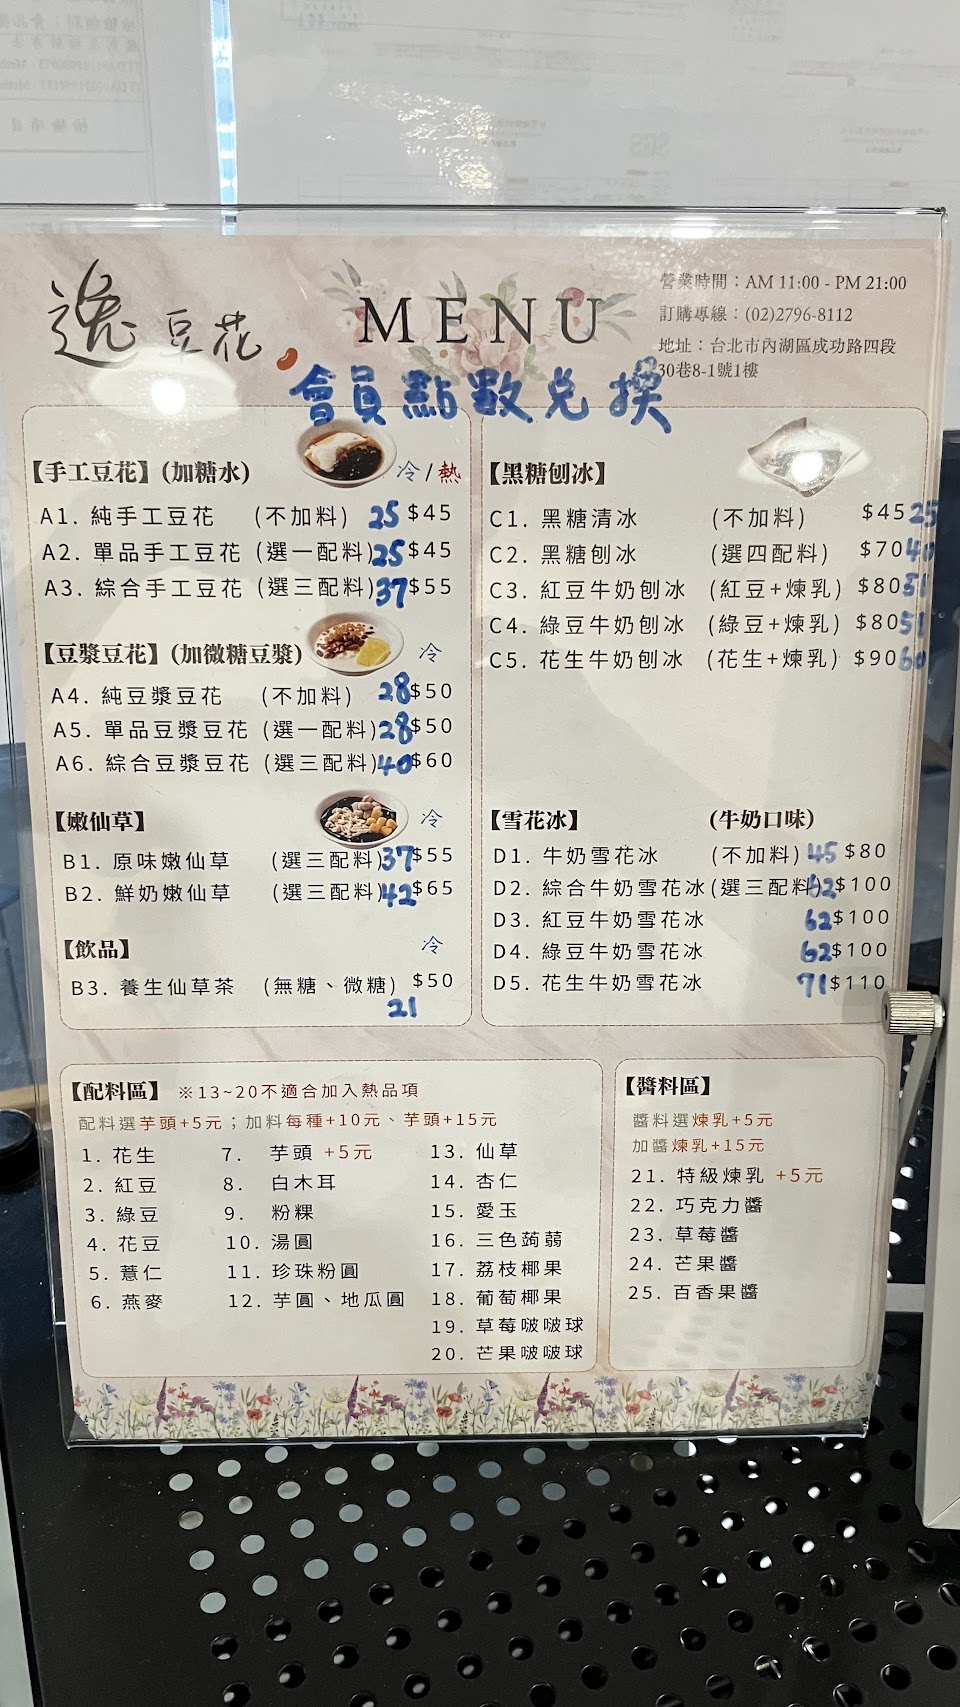 逸豆花
MENU
營業時間：AM 11:00 - PM 21:00
訂購專線：(02)2796-8112
地址：台北市內湖區成功路四段
30巷8-1號1樓
會員點數兌換
【手工豆花】(加糖水) 冷/熱
A1. 純手工豆花 (不加料) 25 $45
A2. 單品手工豆花 (選一配料) 25 $45
A3. 綜合手工豆花 (選三配料) 37 $55
【豆漿豆花】(加微糖豆漿) 冷
A4. 純豆漿豆花 (不加料) 28 $50
A5. 單品豆漿豆花 (選一配料) 28 $50
A6. 綜合豆漿豆花 (選三配料) 40 $60
【嫩仙草】 冷
B1. 原味嫩仙草 (選三配料) 37 $55
B2. 鮮奶嫩仙草 (選三配料) 42 $65
【飲品】 冷
B3. 養生仙草茶 (無糖、微糖) $50
21
【黑糖刨冰】
C1. 黑糖清冰 (不加料) $45 25
C2. 黑糖刨冰 (選四配料) $70 40
C3. 紅豆牛奶刨冰 (紅豆+煉乳) $80 51
C4. 綠豆牛奶刨冰 (綠豆+煉乳) $80 51
C5. 花生牛奶刨冰 (花生+煉乳) $90 60
【雪花冰】 (牛奶口味)
D1. 牛奶雪花冰 (不加料) 45 $80
D2. 綜合牛奶雪花冰 (選三配料) 62 $100
D3. 紅豆牛奶雪花冰 62 $100
D4. 綠豆牛奶雪花冰 62 $100
D5. 花生牛奶雪花冰 71 $110
【配料區】 ※13~20不適合加入熱品項
配料選芋頭+5元；加料每種+10元、芋頭+15元
1. 花生
2. 紅豆
3. 綠豆
4. 花豆
5. 薏仁
6. 燕麥
7. 芋頭 +5元
8. 白木耳
9. 粉粿
10. 湯圓
11. 珍珠粉圓
12. 芋圓、地瓜圓
13. 仙草
14. 杏仁
15. 愛玉
16. 三色蒟蒻
17. 荔枝椰果
18. 葡萄椰果
19. 草莓啵啵球
20. 芒果啵啵球
【醬料區】
醬料選煉乳+5元
加醬煉乳+15元
21. 特級煉乳 +5元
22. 巧克力醬
23. 草莓醬
24. 芒果醬
25. 百香果醬